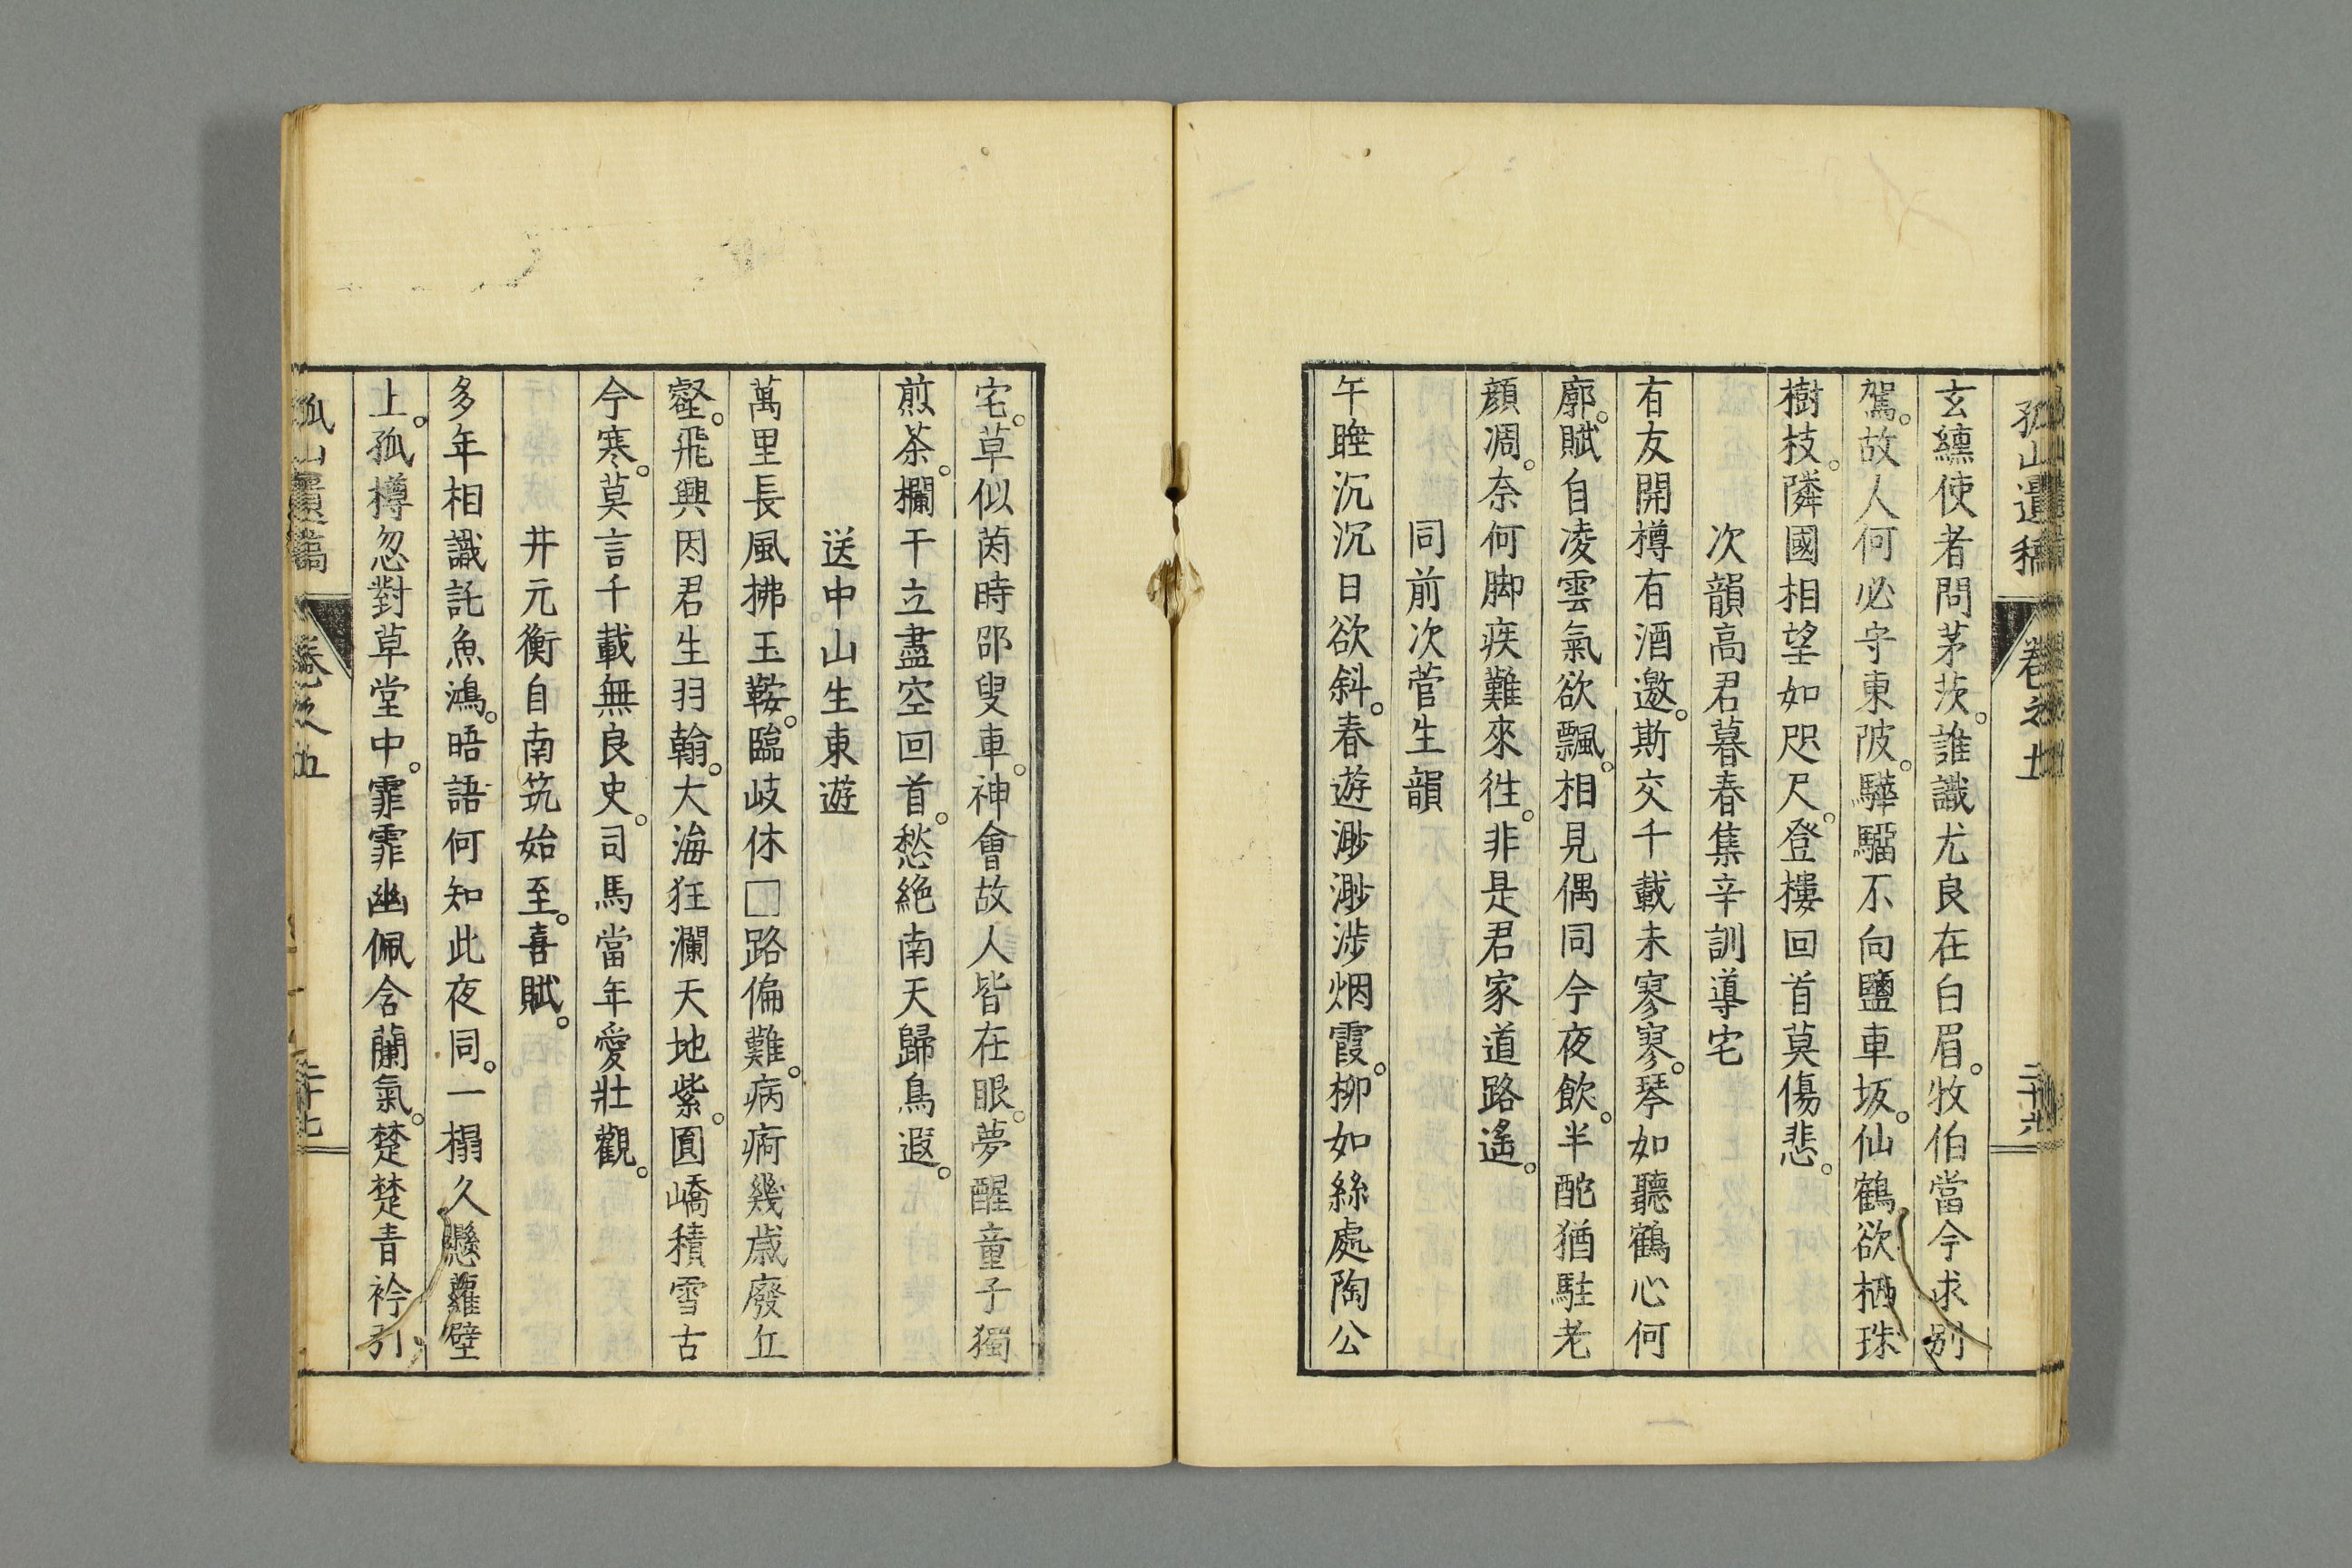 孤山遺稿 卷之五 二十六
玄纁使者問茅茨。誰識尤良在白眉。牧伯當今求別
駕。故人何必守東陂。驊騮不向鹽車坂。仙鶴欲栖珠
樹枝。隣國相望如咫尺。登樓回首莫傷悲。
次韻高君暮春集辛訓導宅
有友開樽有酒邀。斯交千載未寥寥。琴如聽鶴心何
廓。賦自凌雲氣欲飄。相見偶同今夜飲。半酡猶駐老
顏凋。奈何脚疾難來徃。非是君家道路遙。
同前次菅生韻
午睡沉沉日欲斜。春遊渺渺涉烟霞。柳如絲處陶公
宅。草似茵時邵叟車。神會故人皆在眼。夢醒童子獨
煎茶。欄干立盡空回首。愁絶南天歸鳥遐。
送中山生東遊
萬里長風拂玉鞍。臨岐休□路偏難。病痾幾歲廢丘
壑。飛興因君生羽翰。大海狂瀾天地紫。圓嶠積雪古
今寒。莫言千載無良史。司馬當年愛壯觀。
井元衡自南筑始至。喜賦。
多年相識託魚鴻。晤語何知此夜同。一榻久懸蘿壁
上。孤樽忽對草堂中。霏霏幽佩含蘭氣。楚楚青衿引
孤山遺稿 卷之五 二十七